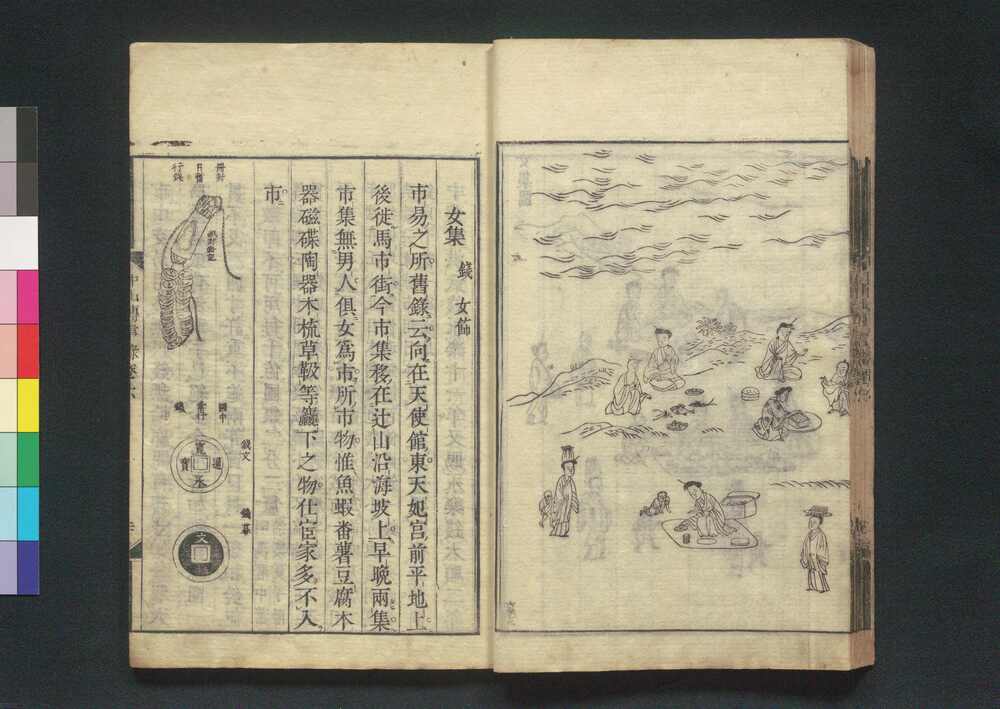 女集 錢 女飾
市易之所舊錄云向在天使館東天妃宮前平地上
後徙馬市街今市集移在辻山沿海坡上早晚兩集
市集無男人俱女為市所市物惟魚蝦番薯豆腐木
器磁碟陶器木梳草靸等麤下之物仕宦家多不入
市
錢文
錢幕
國中
寬永通寳
文
行錢